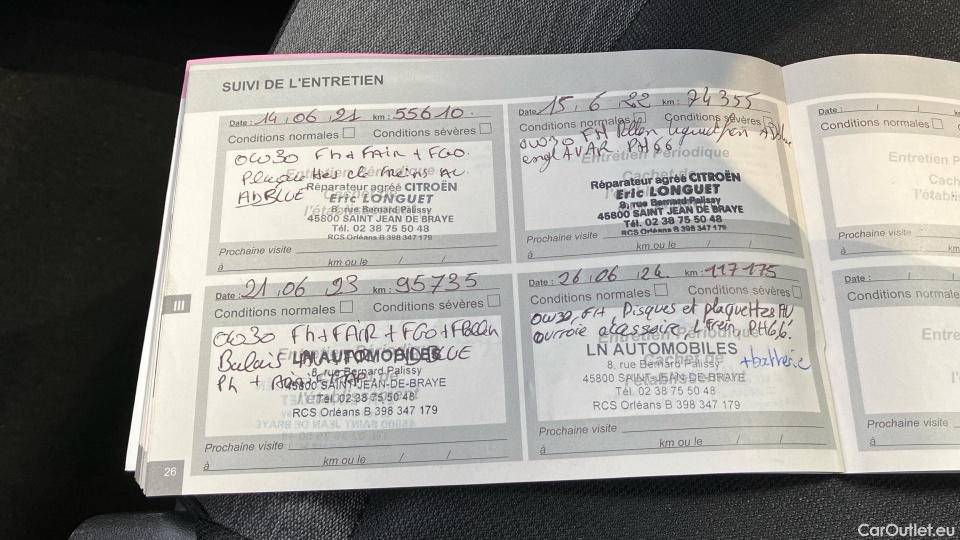 SUIVI DE L'ENTRETIEN
Date: 14.06.21 km: 55610
Conditions normales Conditions sévères
0W30 Fh + FAIR + FGO.
Plaquettes de freins AV.
ADBLUE
Réparateur agréé CITROËN
Eric LONGUET
8, rue Bernard Palissy
45800 SAINT JEAN DE BRAYE
Tél. 02 38 75 50 48
RCS Orléans B 398 347 179
Prochaine visite
à km ou le / /
Date: 15.6.22 km: 74355
Conditions normales Conditions sévères
0W30 FH
AVAR. PH66
Entretien Périodique
Réparateur agréé CITROËN
Eric LONGUET
8, rue Bernard Palissy
45800 SAINT JEAN DE BRAYE
Tél. 02 38 75 50 48
RCS Orléans B 398 347 179
Prochaine visite
à km ou le / /
Date: / / km:
Conditions normales
Date: 21.06 23 km: 95735
Conditions normales Conditions sévères
0W30 Fh + FAIR + FGO + FPollen
Balais ADBLUE
LN AUTOMOBILES
8, rue Bernard Palissy
45800 SAINT-JEAN-DE-BRAYE
Tél. 02 38 75 50 48
RCS Orléans B 398 347 179
Prochaine visite
à km ou le / /
Date: 26.06.24 km: 117175
Conditions normales Conditions sévères
0W30, FH, Disques et plaquettes AV
courroie accessoire, L Frein, PH66!
+batterie
LN AUTOMOBILES
8, rue Bernard Palissy
45800 SAINT-JEAN-DE-BRAYE
Tél. 02 38 75 50 48
RCS Orléans B 398 347 179
Prochaine visite
à km ou le / /
Date: / /
Conditions normales
Prochaine visite
à
III
26
CarOutlet.eu